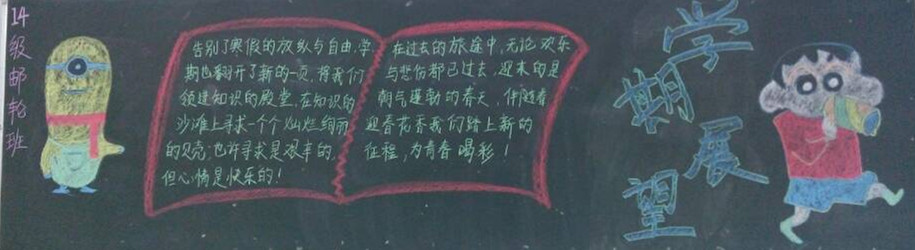 14级邮轮班
告别了寒假的放纵与自由,学
期也翻开了新的一页,将我们
领进知识的殿堂,在知识的
沙滩上寻求一个个灿烂绚丽
的贝壳;也许寻求是艰辛的,
但心情是快乐的!
在过去的旅途中,无论欢乐
与悲伤都已过去,迎来的是
朝气蓬勃的春天,伴随着
迎春花香我们踏上新的
征程,为青春喝彩!
学期展望